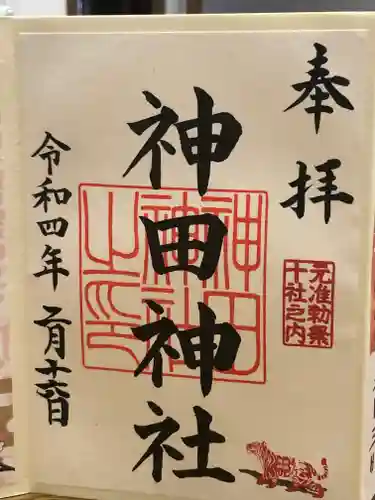 奉拝
元准勅祭
十社之内
神田神社
神田
神社
之印
令和四年二月十六日